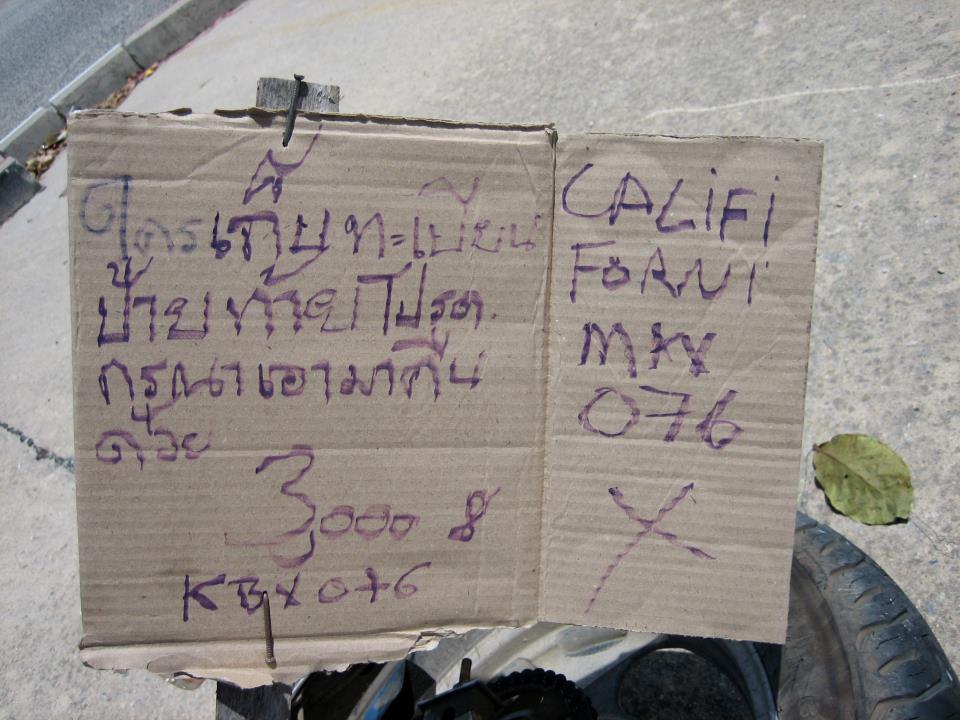 ใครเก็บทะเบียน
ป้ายท้ายโปรด
กรุณาเอามาคืน
ด้วย
3000 ฿
KBX076
CALiFi
FORNi
MKX
076
X